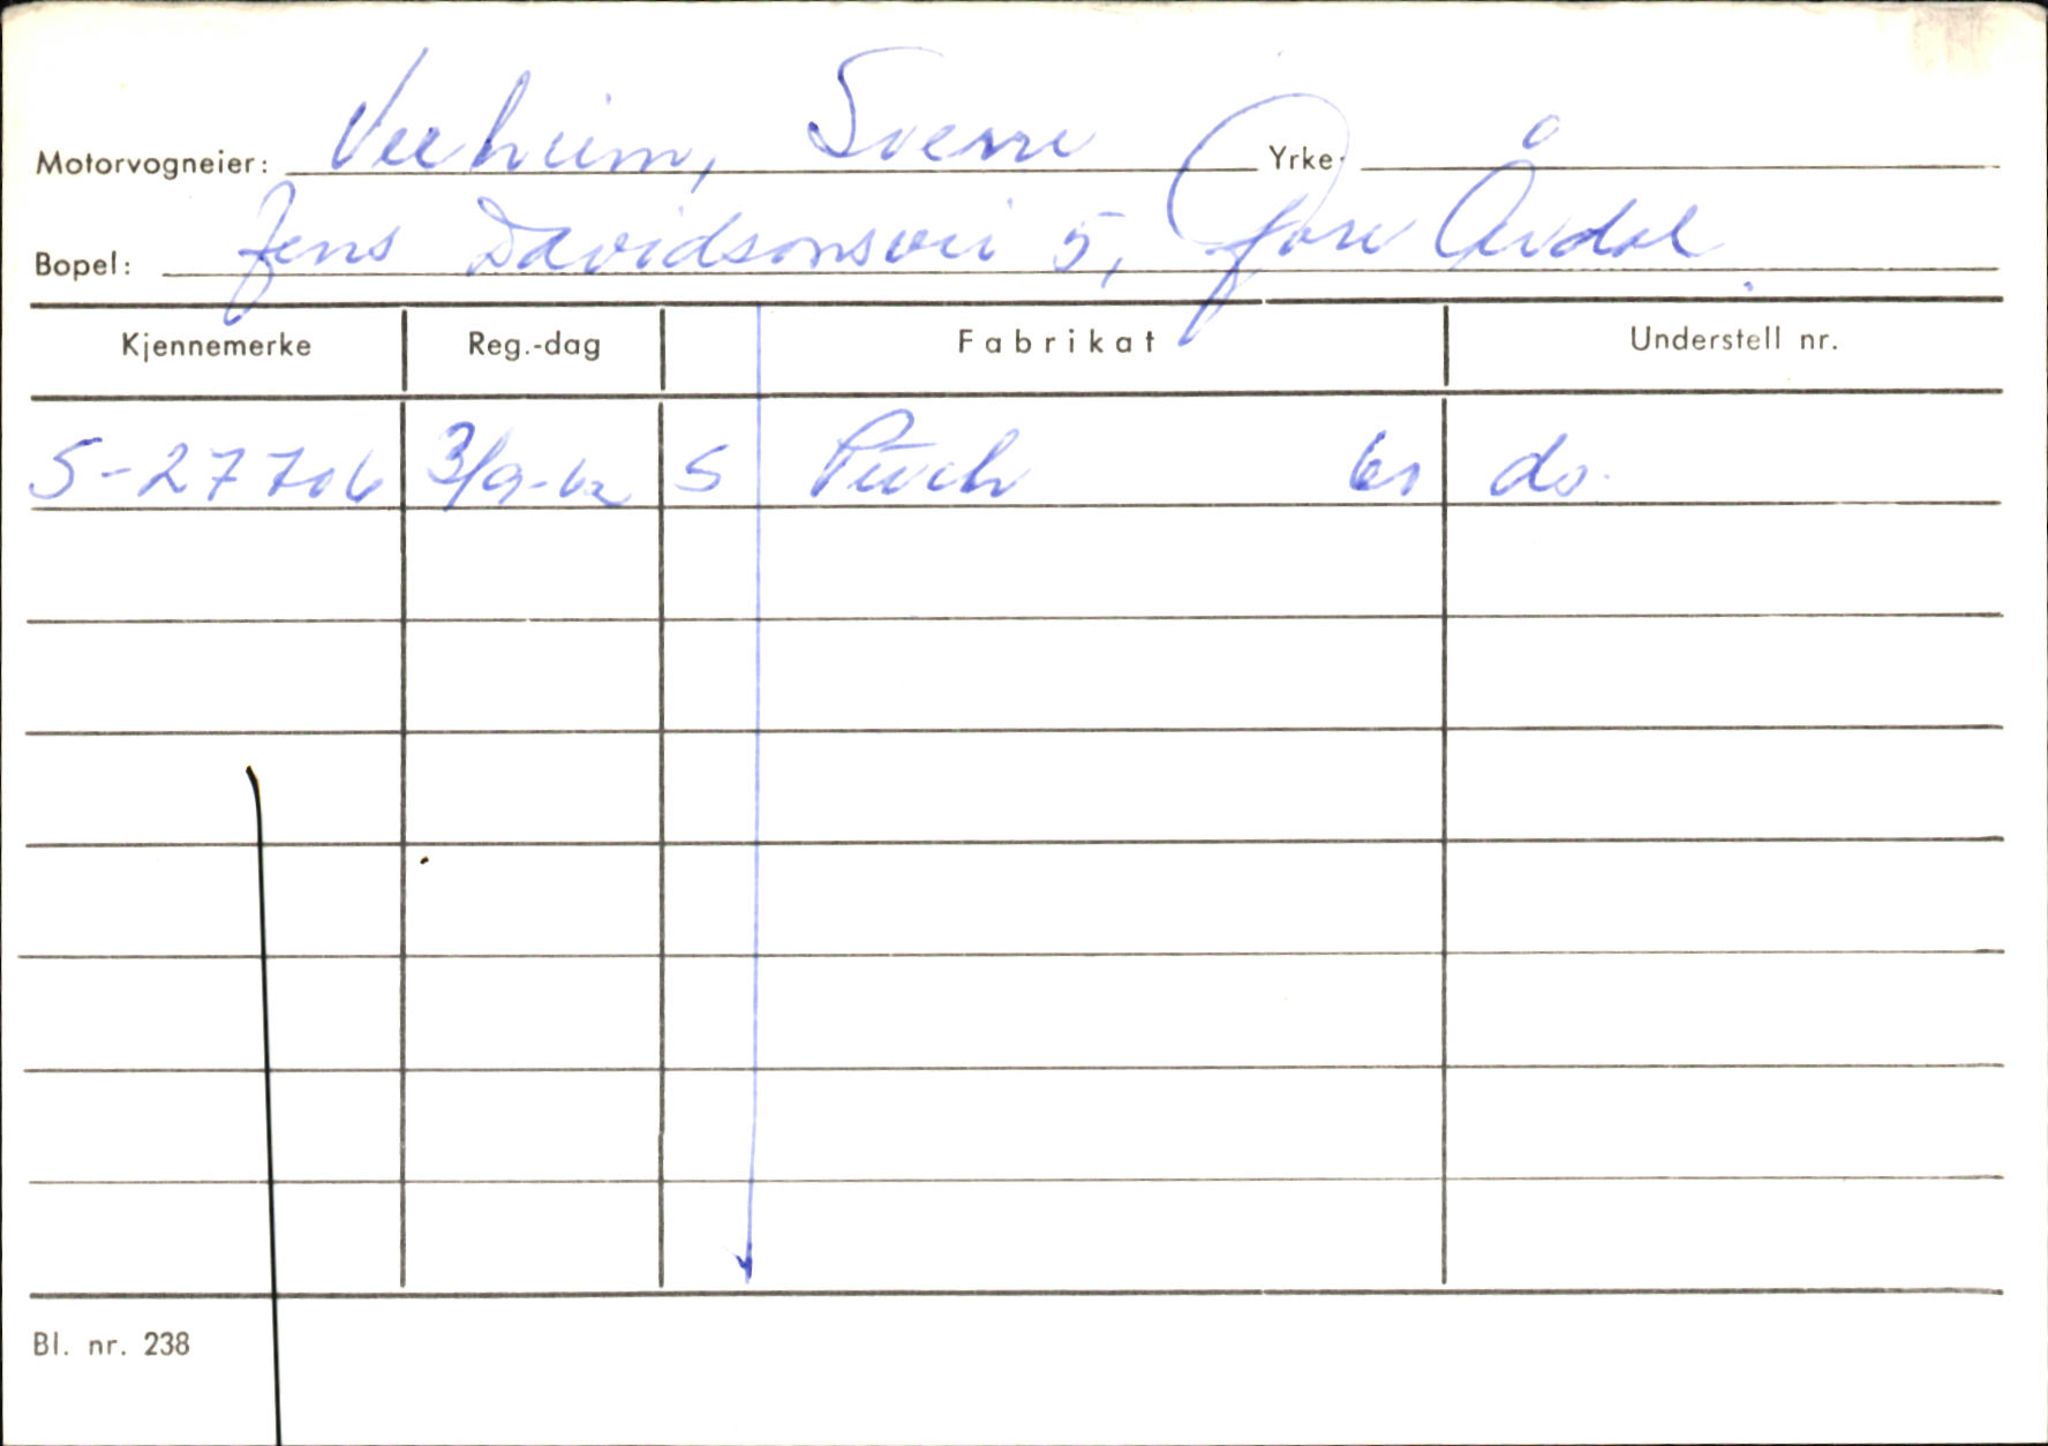 Motorvogneier: Veeheim, Sverre Yrke:
Bopel: Jens Davidsonsvei 5, Øvre Årdal
Kjennemerke Reg.-dag Fabrikat Understell nr.
S-27706 3/9-62 S Puch 61 do.
Bl. nr. 238